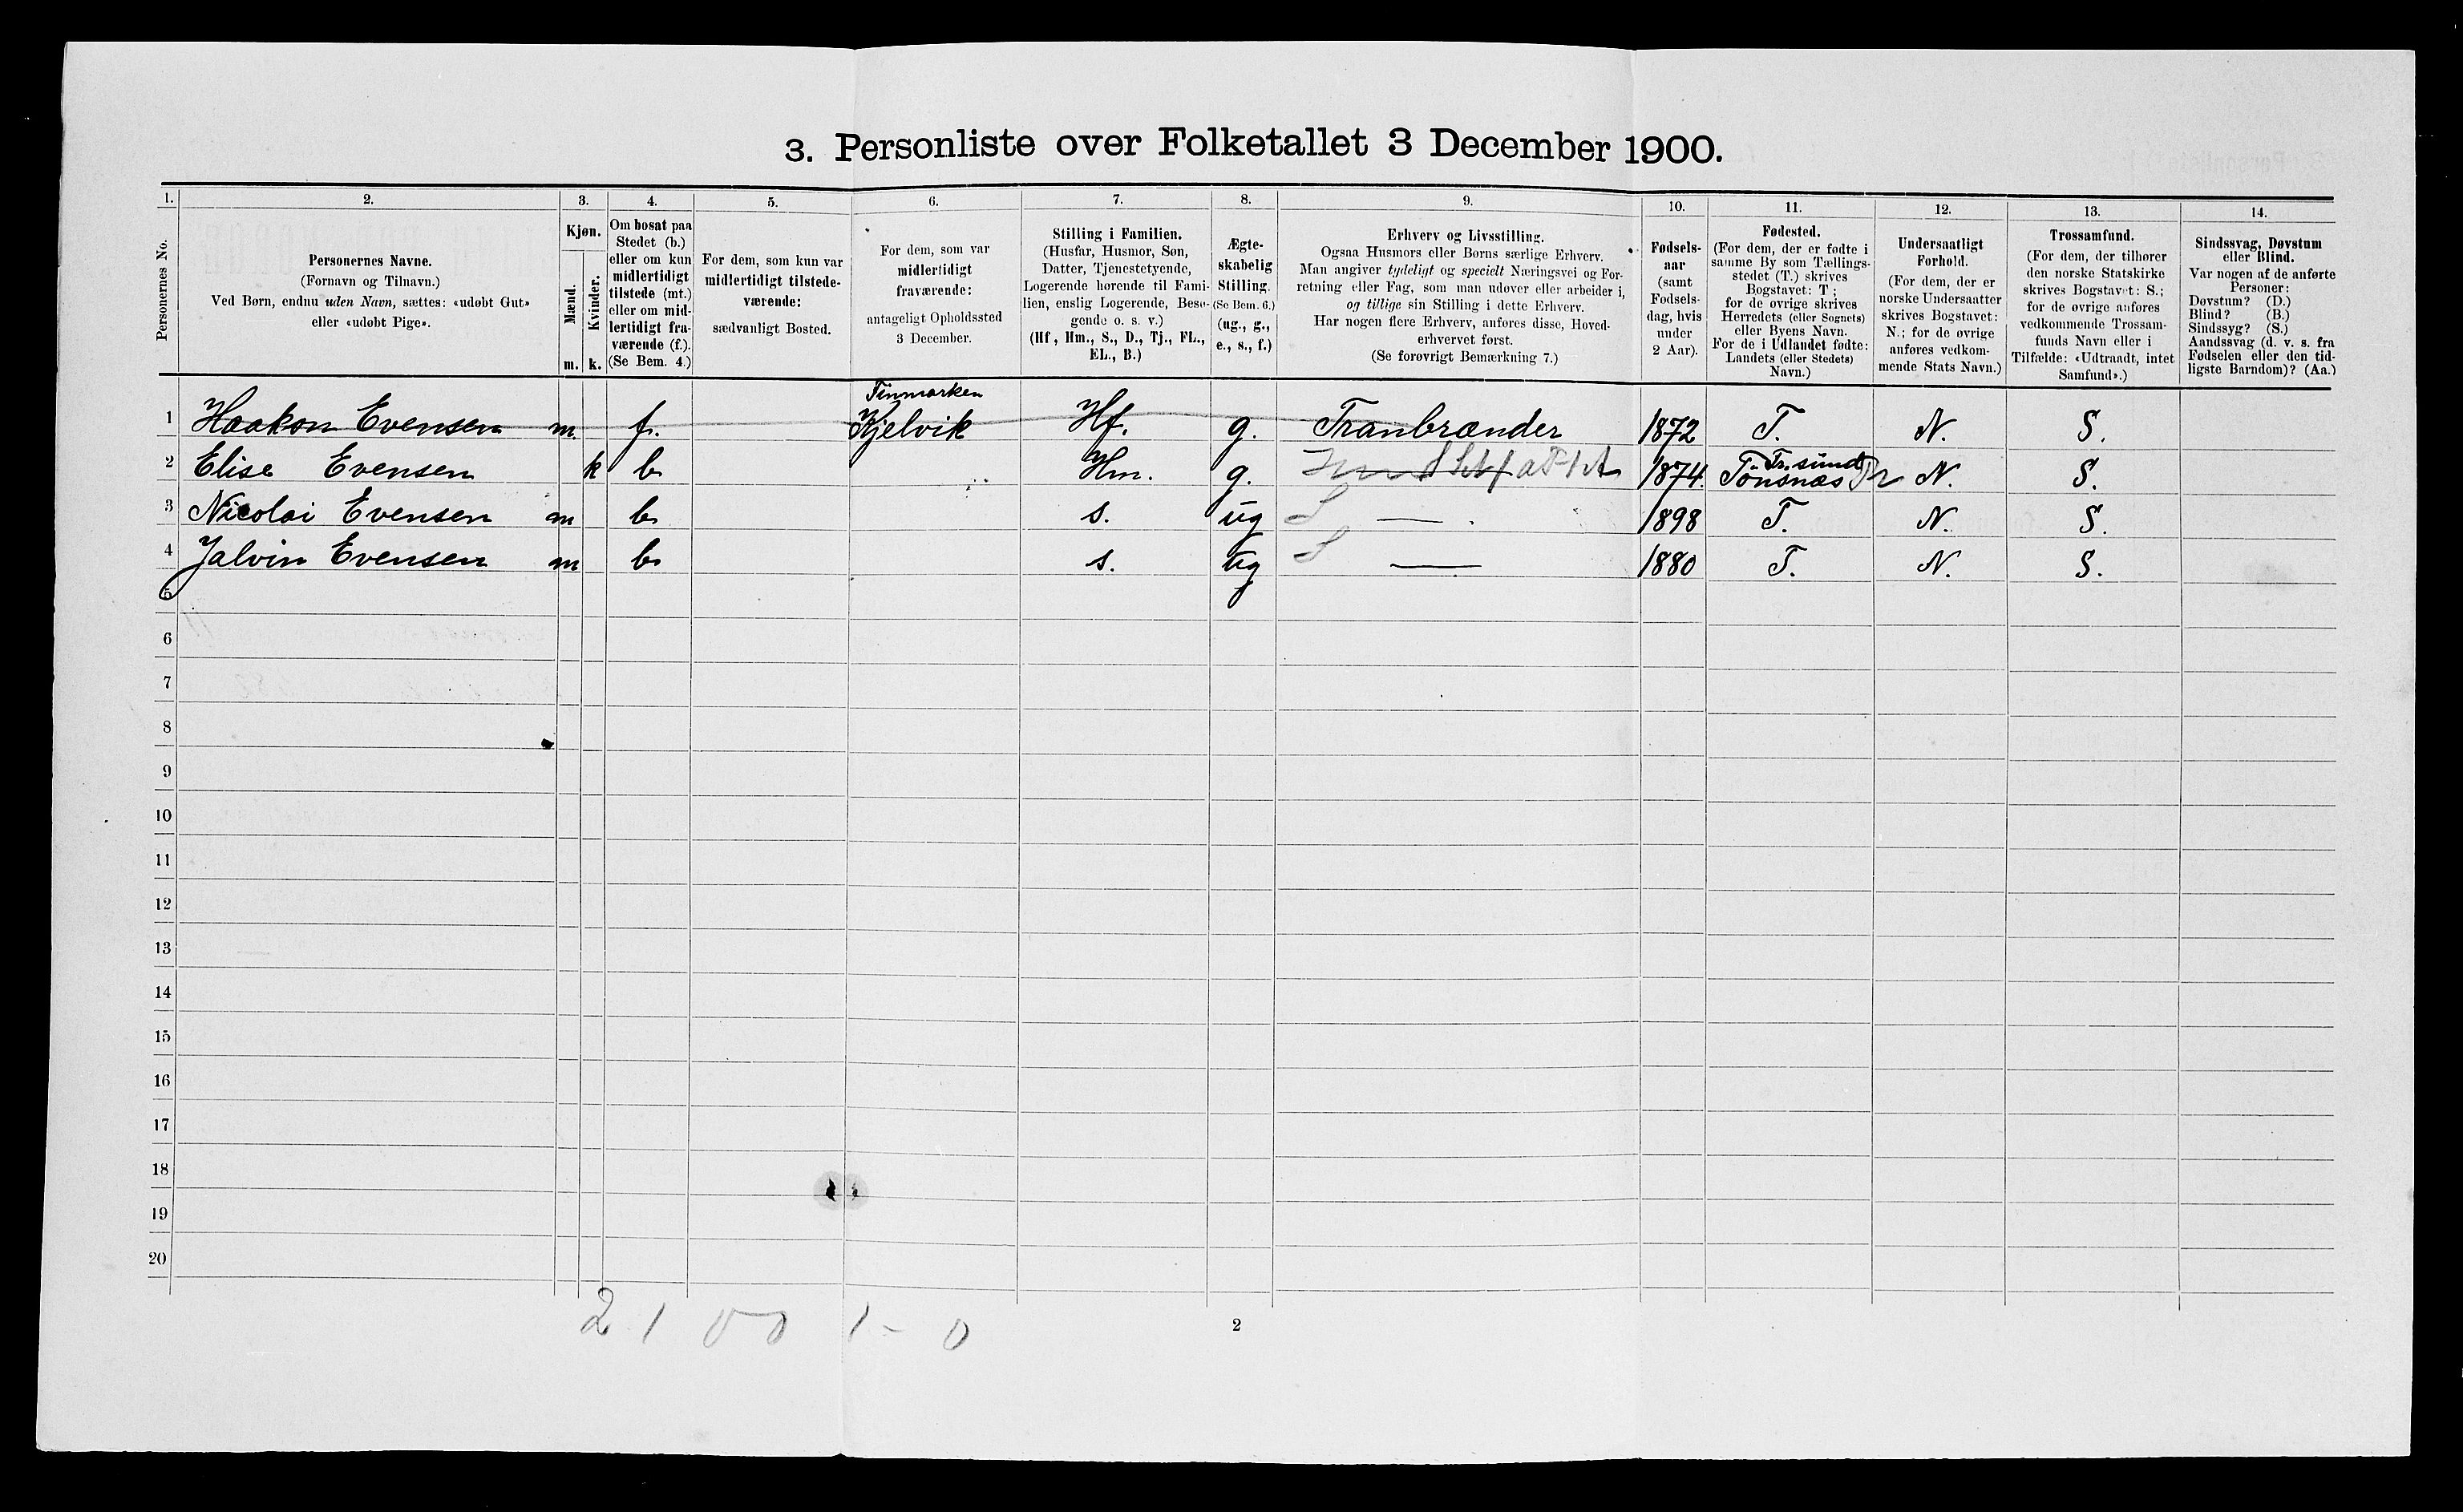 3. Personliste over Folketallet 3 December 1900.
1. 2. 3. 4. 5. 6. 7. 8. 9. 10. 11. 12. 13. 14.
Personernes No.
Personernes Navne.
(Fornavn og Tilnavn.)
Ved Børn, endnu uden Navn, sættes: «udøbt Gut»
eller «udøbt Pige».
Kjøn.
Mænd.
Kvinder.
m. k.
Om bosat paa
Stedet (b.)
eller om kun
midlertidigt
tilstede (mt.)
eller om mid-
lertidigt fra-
værende (f.).
(Se Bem. 4.)
For dem, som kun var
midlertidigt tilstede-
værende:
sædvanligt Bosted.
For dem, som var
midlertidigt
fraværende:
antageligt Opholdssted
3 December.
Stilling i Familien.
(Husfar, Husmor, Søn,
Datter, Tjenestetyende,
Logerende hørende til Fami-
lien, enslig Logerende, Besø-
gende o. s. v.)
(Hf, Hm., S., D., Tj., FL.,
EL., B.)
Ægte-
skabelig
Stilling.
(Se Bem. 6.)
(ug., g.,
e., s., f.)
Erhverv og Livsstilling.
Ogsaa Husmors eller Børns særlige Erhverv.
Man angiver tydeligt og specielt Næringsvei og For-
retning eller Fag, som man udøver eller arbeider i,
og tillige sin Stilling i dette Erhverv.
Har nogen flere Erhverv, anføres disse, Hoved-
erhvervet først.
(Se forøvrigt Bemærkning 7.)
Fødsels-
aar
(samt
Fødsels-
dag, hvis
under
2 Aar).
Fødested.
(For dem, der er fødte i
samme By som Tællings-
stedet (T.) skrives
Bogstavet: T ;
for de øvrige skrives
Herredets (eller Sognets)
eller Byens Navn.
For de i Udlandet fødte:
Landets (eller Stedets)
Navn.)
Undersaatligt
Forhold.
(For dem, der er
norske Undersaatter
skrives Bogstavet:
N.; for de øvrige
anføres vedkom-
mende Stats Navn.)
Trossamfund.
(For dem, der tilhører
den norske Statskirke
skrives Bogstavet: S.;
for de øvrige anføres
vedkommende Trossam-
funds Navn eller i
Tilfælde: «Udtraadt, intet
Samfund».)
Sindssvag, Døvstum
eller Blind.
Var nogen af de anførte
Personer:
Døvstum? (D.)
Blind? (B.)
Sindssyg? (S.)
Aandssvag (d. v. s. fra
Fødselen eller den tid-
ligste Barndom)? (Aa.)
Finmarken
1 Haakon Evensen m. f. Kjelvik Hf. g. Tranbrænder 1872 T. N. S.
Tr.sund
2 Elise Evensen k b Hm. g. 1874. Tönsnæs Tr N. S.
3 Nicolai Evensen m b s. ug S — 1898 T. N. S.
4 Jalvin Evensen m b s. ug S — 1880 T. N. S.
5
6
7
8
9
10
11
12
13
14
15
16
17
18
19
20
2 1 0 0 1 - 0
2